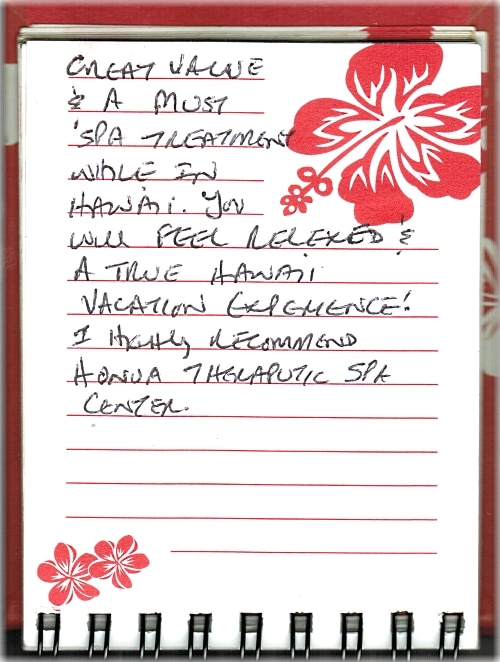 GREAT VALUE
& A MUST
'SPA TREATMENT
WHILE IN
HAWAII. YOU
WILL FEEL RELEXED &
A TRUE HAWAII
VACATION EXPERIENCE!
I HIGHLY RECOMMEND
HONUA THERAPUTIC SPA
CENTER.